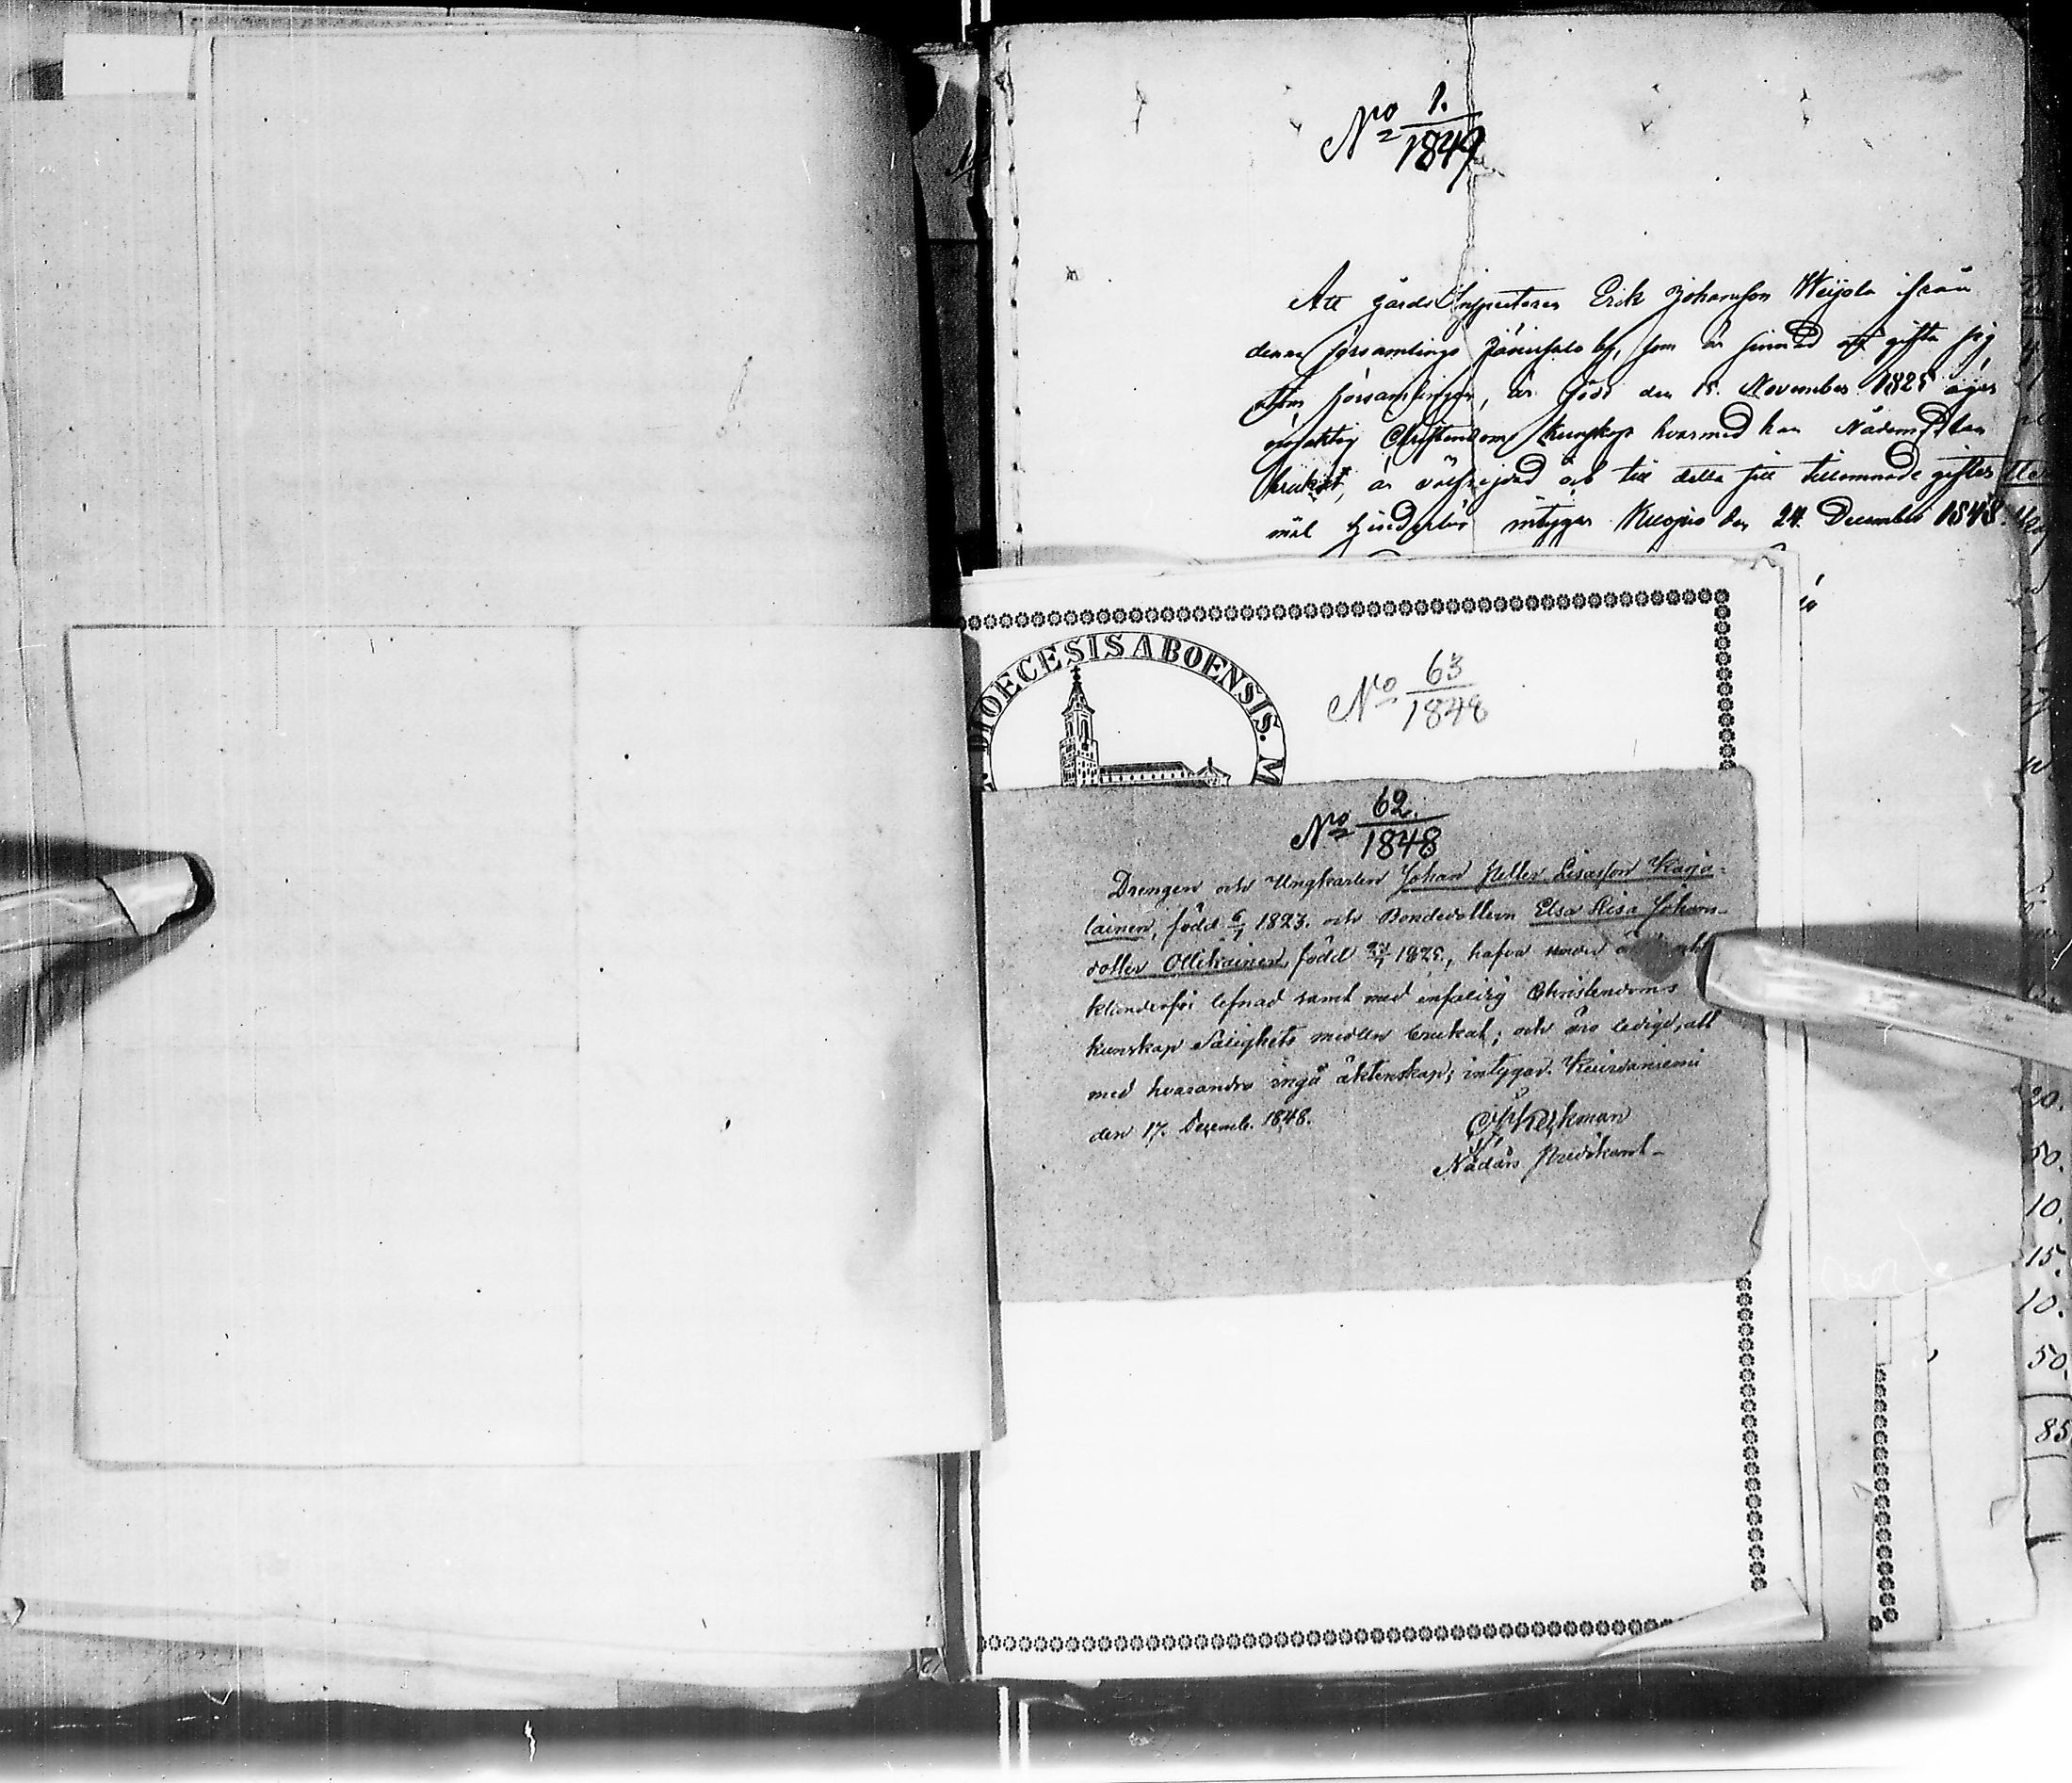 No 1.
1849
Att Gårds Inspectoren Erik Johansson Weijola ifrån
denna församlings by, som är sinnad att gifta sig
utom församlingen, är född den 15. November 1825 äger
Christendoms kunskap hvarmed han Nådemedlen
brukat, är välfrejdad och till detta sitt tillämnade gifter
mål hinderlös intygar Kuopio den 24. December 1848.
DIOECESIS ABOENSIS. M
No 63
1848
No 62.
1848
Drengen och Ungkarlen Johan Petter Lisasson Karja-
lainen, född 6/7 1823. och Bondedottern Elsa Lisa Johans-
dotter Ollikainen, född 1825., hafva under
klanderfri lefnad samt med enfaldig Christendoms
kunskap Salighets medlen brukat; och äro ledige, att
med hvarandra ingå äktenskap; intygar. Keisdaniemi
den 17. Decemb. 1848.
Nådårs Predikant
20.
50.
10.
15.
10.
50.
85